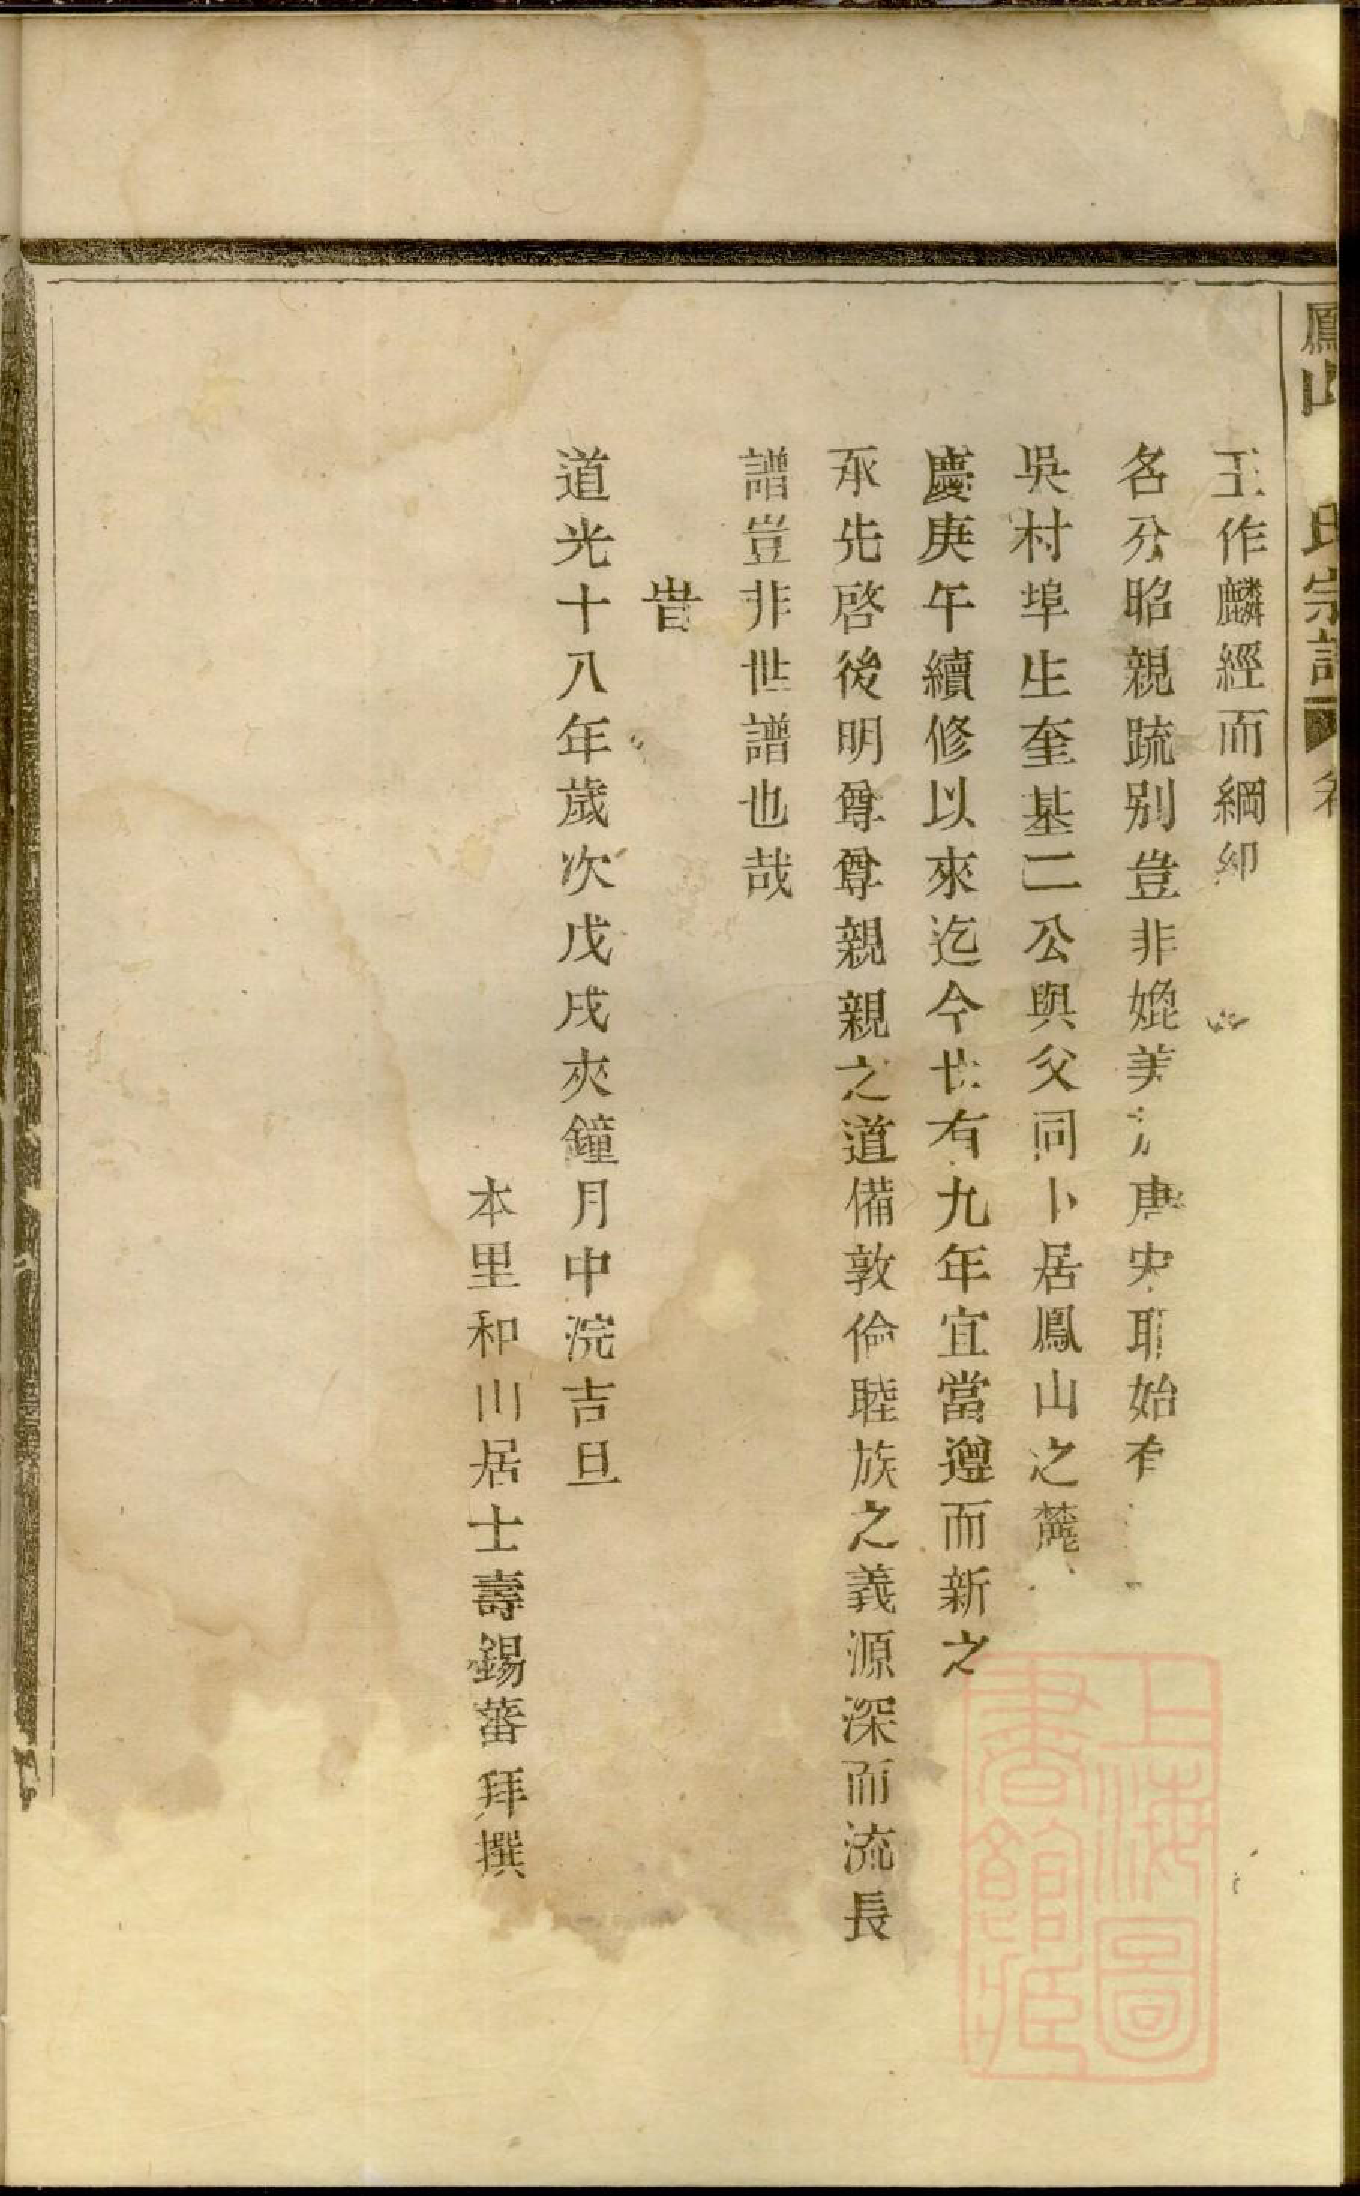 鳳山 氏宗譜 卷
王作麟經而綱
名分昭親疏别豈非媲美 唐史耶始有
吳村埠生奎基二公與父同卜居鳳山之麓
慶庚午續修以來迄今廿有九年宜當遵而新之
承先啓後明尊尊親親之道備敦倫睦族之義源深而流長
譜豈非世譜也哉
旹
道光十八年歲次戊戌夾鐘月中浣吉旦
本里和川居士壽錫蕃拜撰
上海圖
書館藏